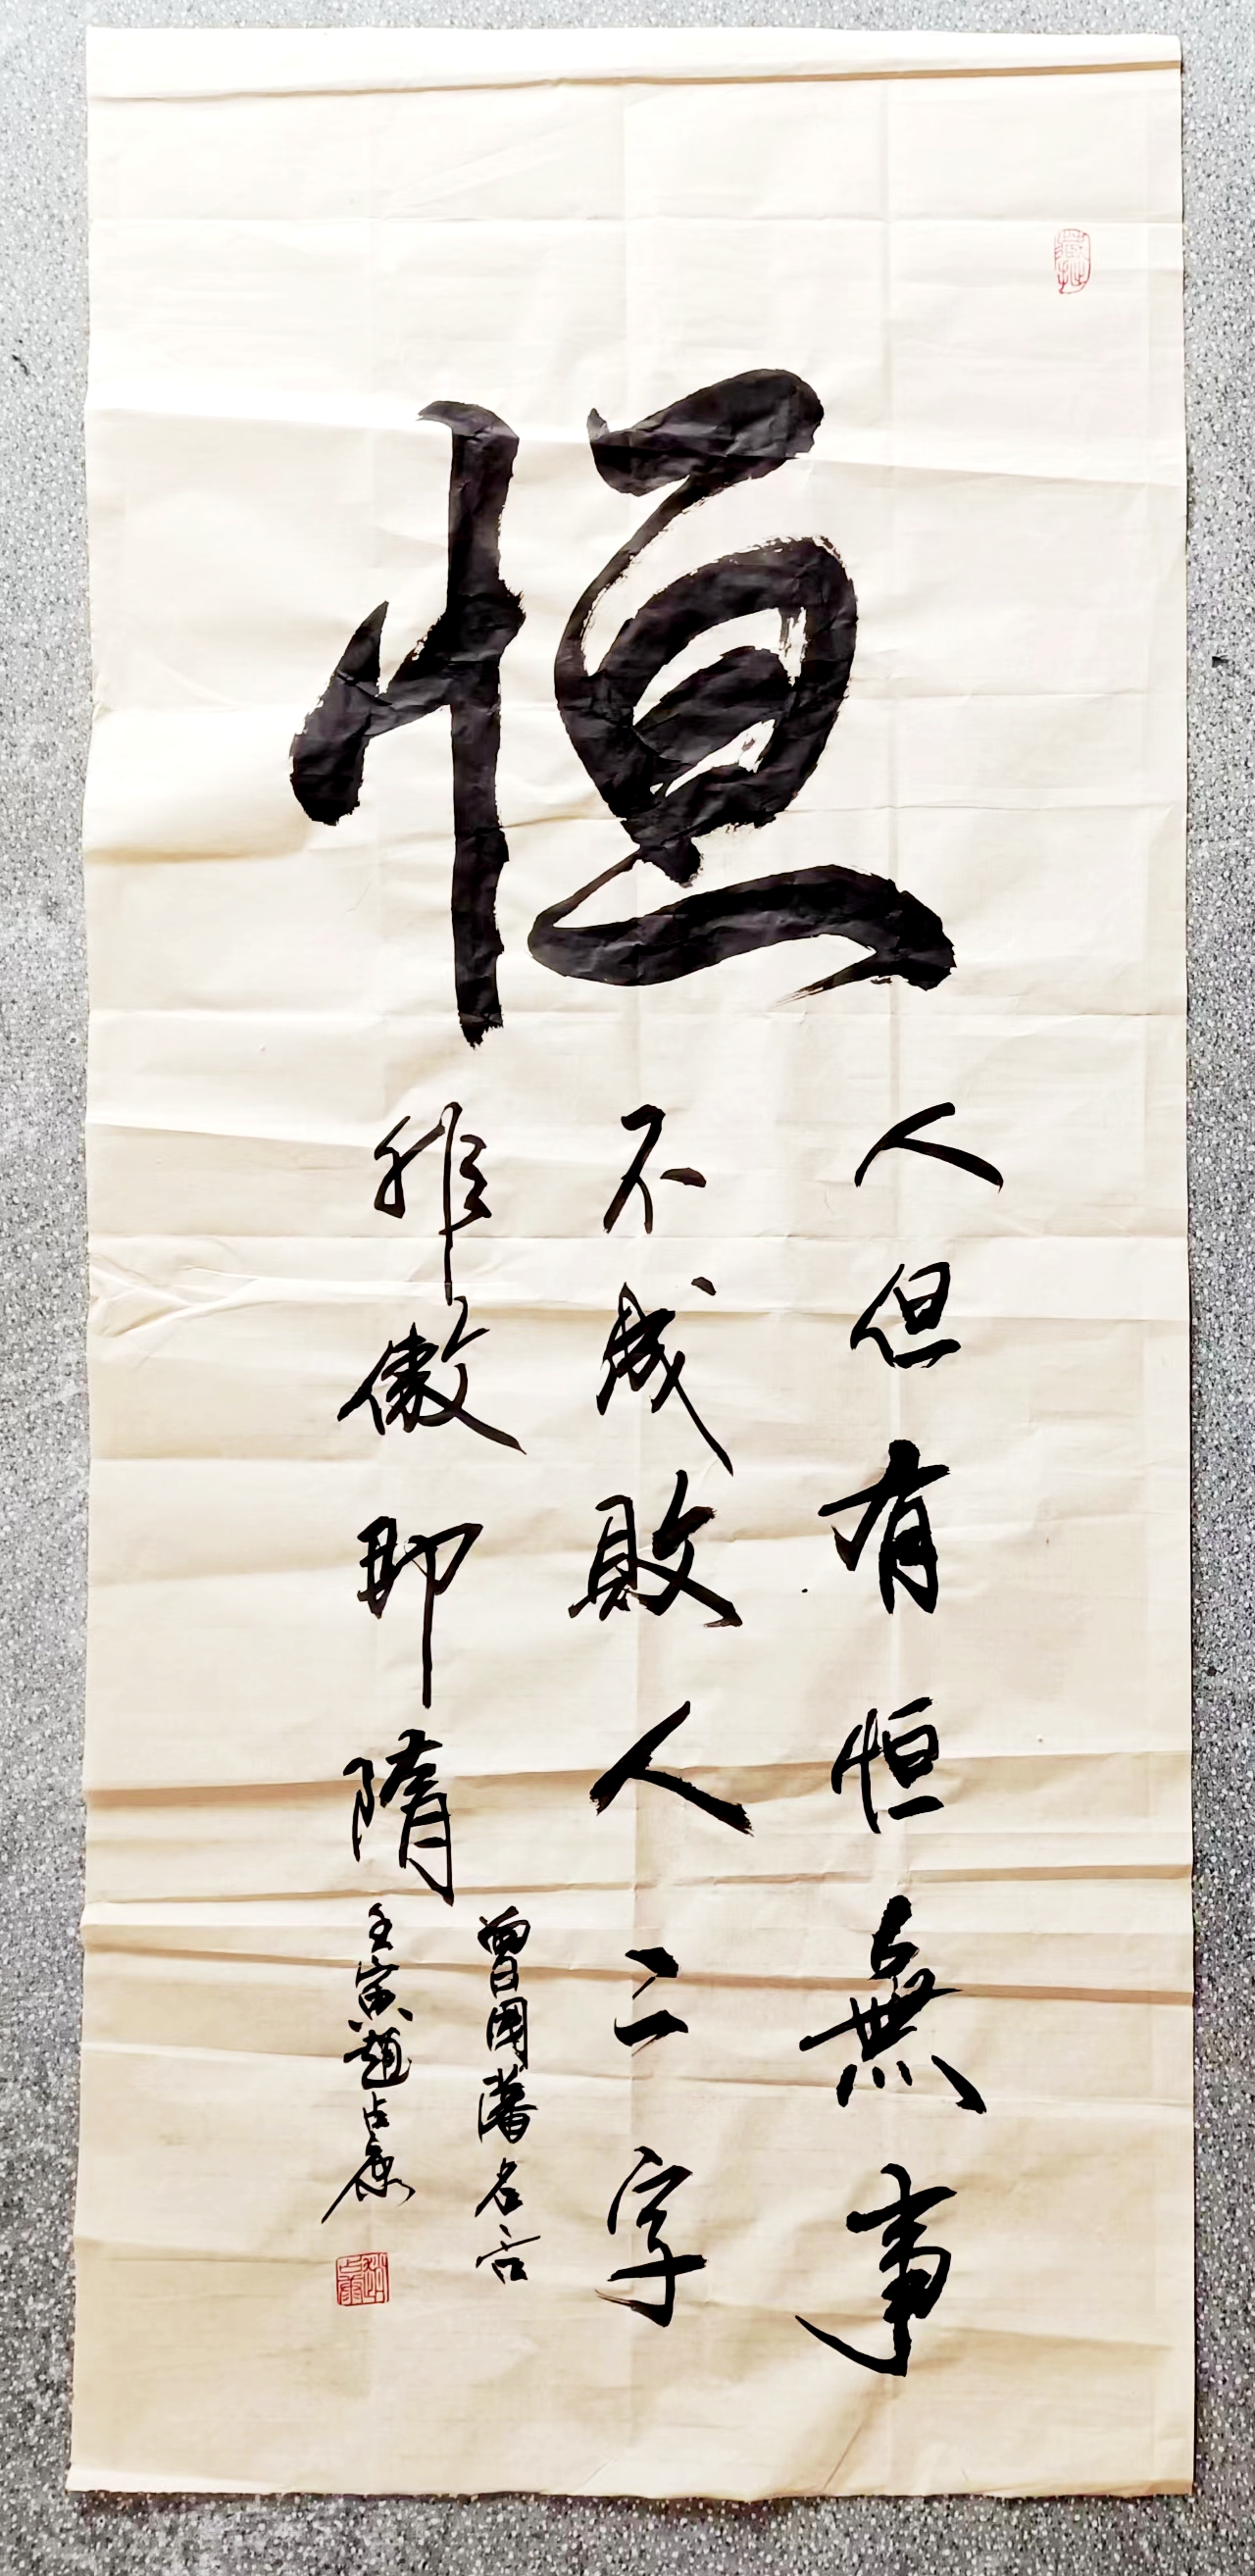 恒
人但有恒無事
不成敗人二字
非傲即隋
曾國藩名言
壬寅趙占康